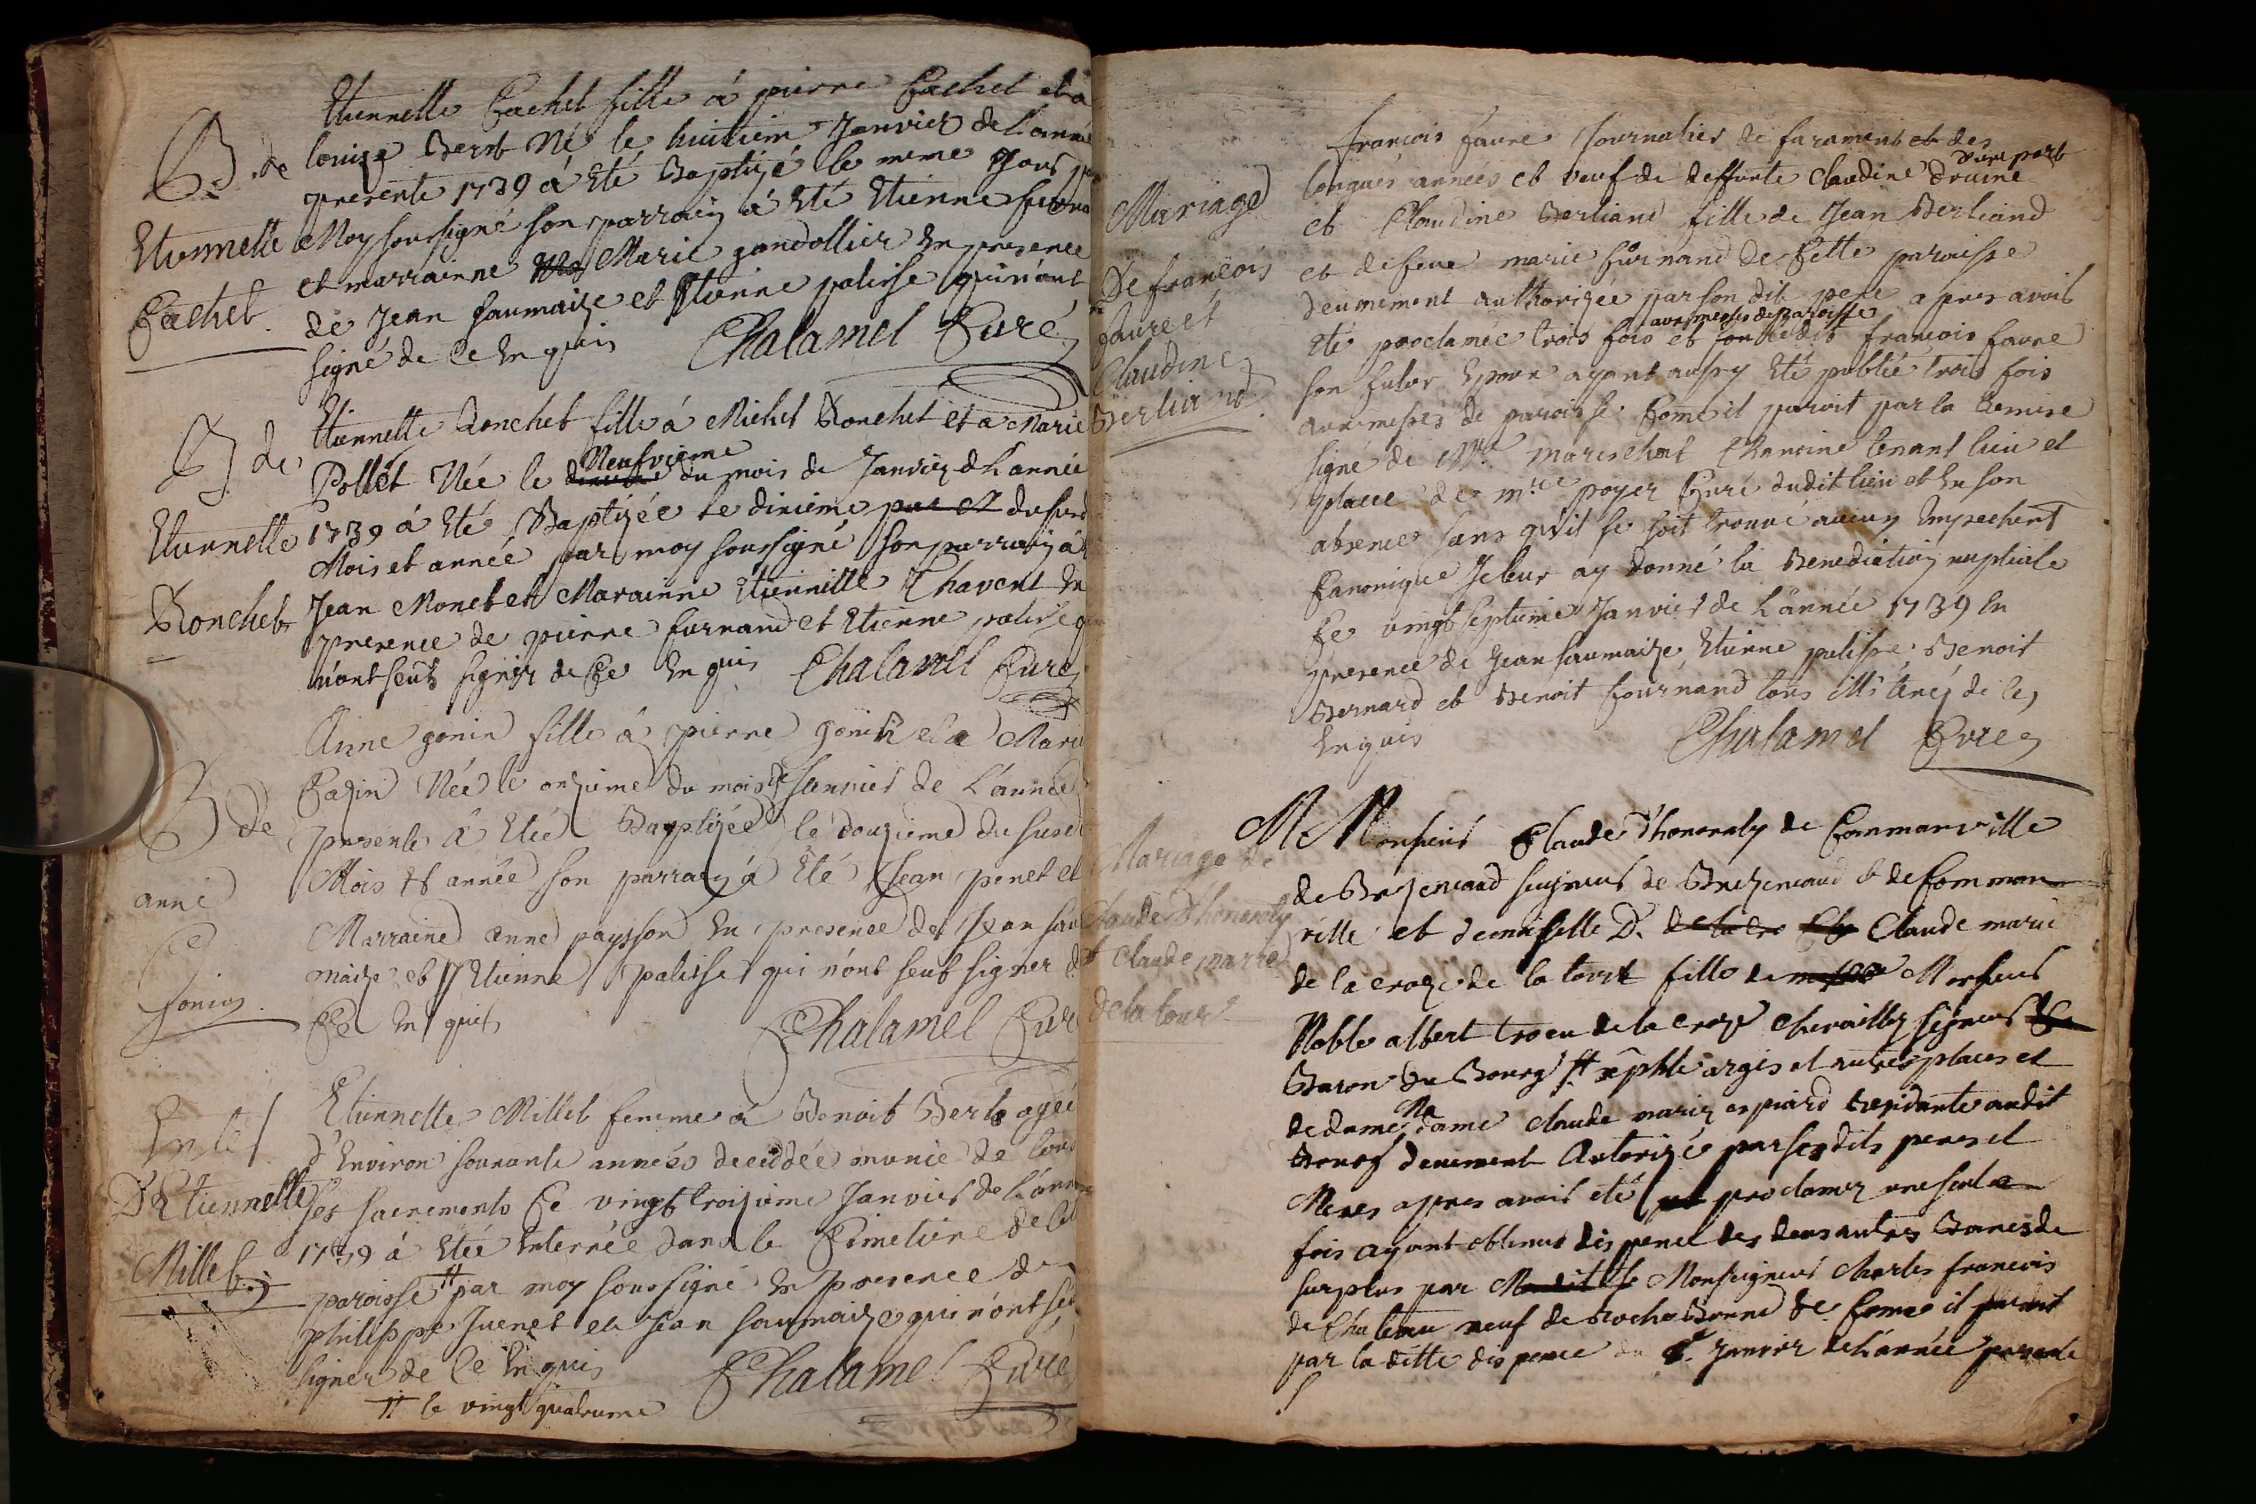 B. de
Etiennette
Cachet
Etiennette Cachet fille à pierre Cachet et a
louise Bert Né le huitiem Janvier de l'année
presente 1739 à été Baptizé le meme Jour par
Moy soussigné son parrain à été Etienne furna
et marrainne Marie gondollier En presence
de Jean saumaize et Etienne palisse qui n'ont
signé de Ce Enquis Chalamel Curé
B. de
Etiennette
Ronchet
Etiennette Ronchet fille à Michel Ronchet et a Marie
Pollet Née le Neufvieme du mois de Janvier d L'année
1739 à été Baptizée Le dixieme du susd
Mois et année par moy soussigné son parrain à
Jean Monet et Marainne Etiennette Thavent En
presence de pierre furnand et Etienne palisse qui
n'ont seuts signer de Ce Enquis Chalamel Curé
B de
anne
Gonin
Anne gonin fille à pierre gonin et a Marie
Cazin Née le onzieme du mois de Janvier de L'année
presente à été Baptizée le douzieme du susd
Mois et année son parrain à été Jean penet et
Marraine anne paysson En presence de Jean sau
maize et Etienne palisse qui n'ont seut signer de
Ce Enquis Chalamel Curé
Ent
D'Etiennette
Millet
Etiennette Millet femme à Benoit Bert agée
d'Environ soixante années decedée munie de tous
ses sacrements Ce vingt troizieme Janvier de L'année
1739 à été Enterrée dans le Cimetiere de
paroisse # par moy soussigné En presence de
philippe Juenet et Jean saumaize qui n'ont seu
signer de Ce Enquis Chalamel Curé
# le vingt quatrieme
Mariage
De francois
faure et
Claudine
Berliand
francois faure Journalier de faramant et des
longues années et veuf de deffunte Claudine Drume d'une part
et Claudine Berliand fille de Jean Berliand
et de feue marie furnand de Cette paroisse
deuement authorizée par son dit pere apres avoir
été proclamée trois fois aux messes de paroisse et son dit francois faure
son futur Epoux ayant aussy été publié trois fois
aux messes de paroisse Come il paroit par la Remise
signé de Mre mareschat Chanoine tenant lieu et
place de mre poyer Curé dudit lieu et En son
absence sans qu'il se soit trouvé aucun Empechent
Canonique Je leur ay donné la Benediction nuptiale
Ce vingt septieme Janvier de L'année 1739 En
presence de Jean saumaize Etienne palisse Benoit
Bernard et Benoit fournand tous illiterés de Ce
Enquis Chalamel Curé
Mariage de
Claude D'honoraty
et Claude marie
de la tour
Monsieur Claude d'honoraty de Commanville
de Brezenaud seigneur de Brezenaud et de Comman
ville et demoiselle D. Claude marie
de la croze de la tour fille de Monsieur
Noble albert de la croze Chevallier seigneur
Baron du Bourg st argis et autres places et
de dame dame Claude marie espiard residante audit
Bourg deuement Autorizée par ses dits peres et
Meres apres avoir été proclamez une seule
fois ayant obtenus dispence des deux autres Bannes de
surplus par Monseigneur Charles francois
de Chateau neuf de Roche Bonne Come il paroit
par la ditte dispence du Janvier de L'année presente